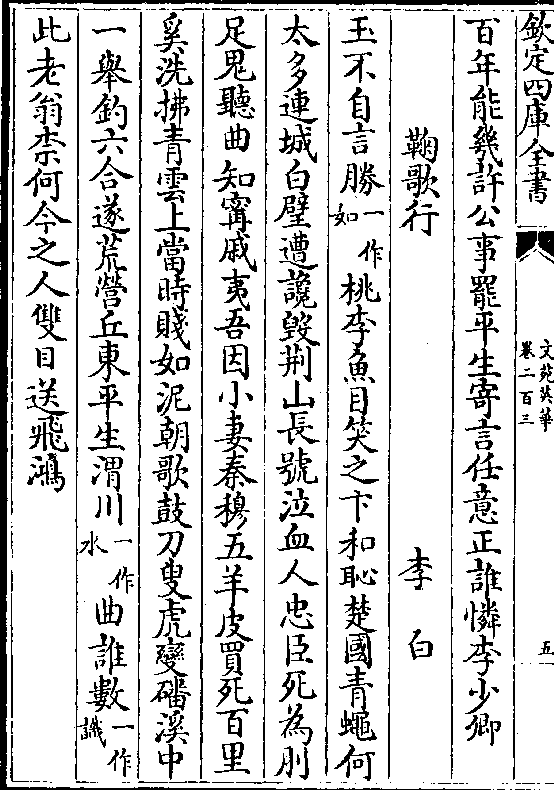 欽定四庫全書
文苑英華
卷二百三
五
百年能幾許公事罷平生寄言任意正誰憐李少卿
鞠歌行
李白
玉不自言勝一作如桃李魚目笑之卞和恥楚國青蠅何
太多連城白璧遭讒毀荆山長號泣血人忠臣死為刖
足鬼聽曲知甯戚夷吾因小妻秦穆五羊皮買死百里
奚洗拂青雲上當時賤如泥朝歌鼓刀叟虎變磻溪中
一舉釣六合遂荒營丘東平生渭川一作水曲誰數一作識
此老翁柰何今之人雙目送飛鴻